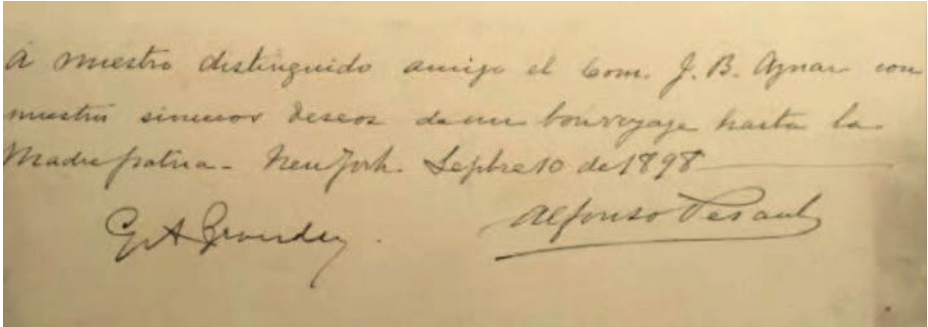 A nuestro distinguido amigo el Com. J. B. Aznar con
nuestros sinceros deseos de un bon voyage hasta la
Madre patria - New York. Sepbre 10 de 1898
Alfonso